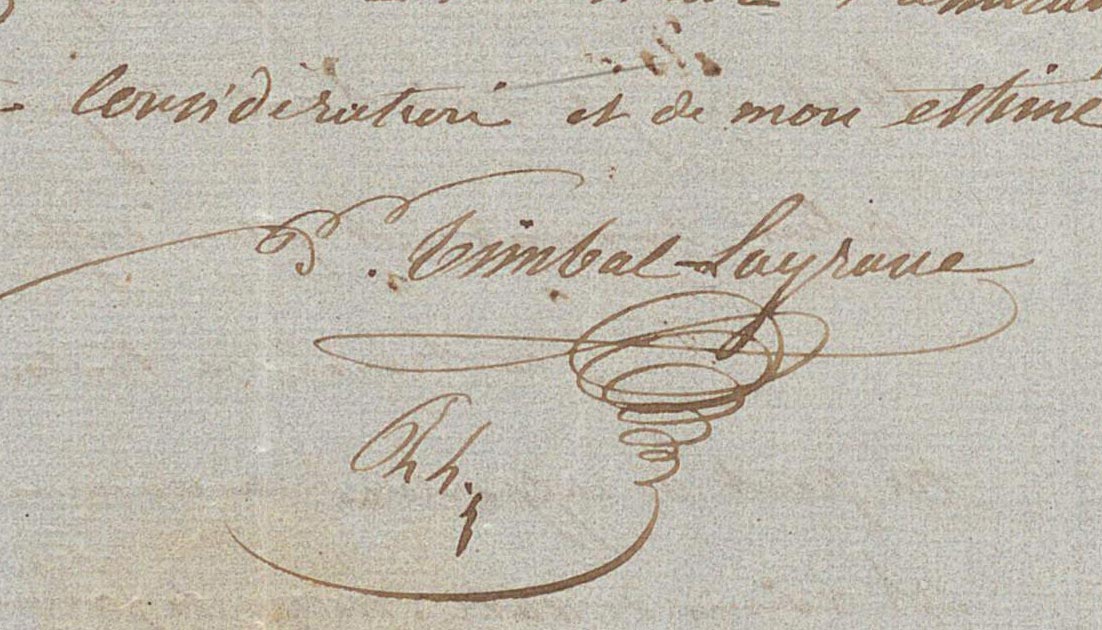 considération et de mon estime
P. Timbal-Lagrave
Ph.